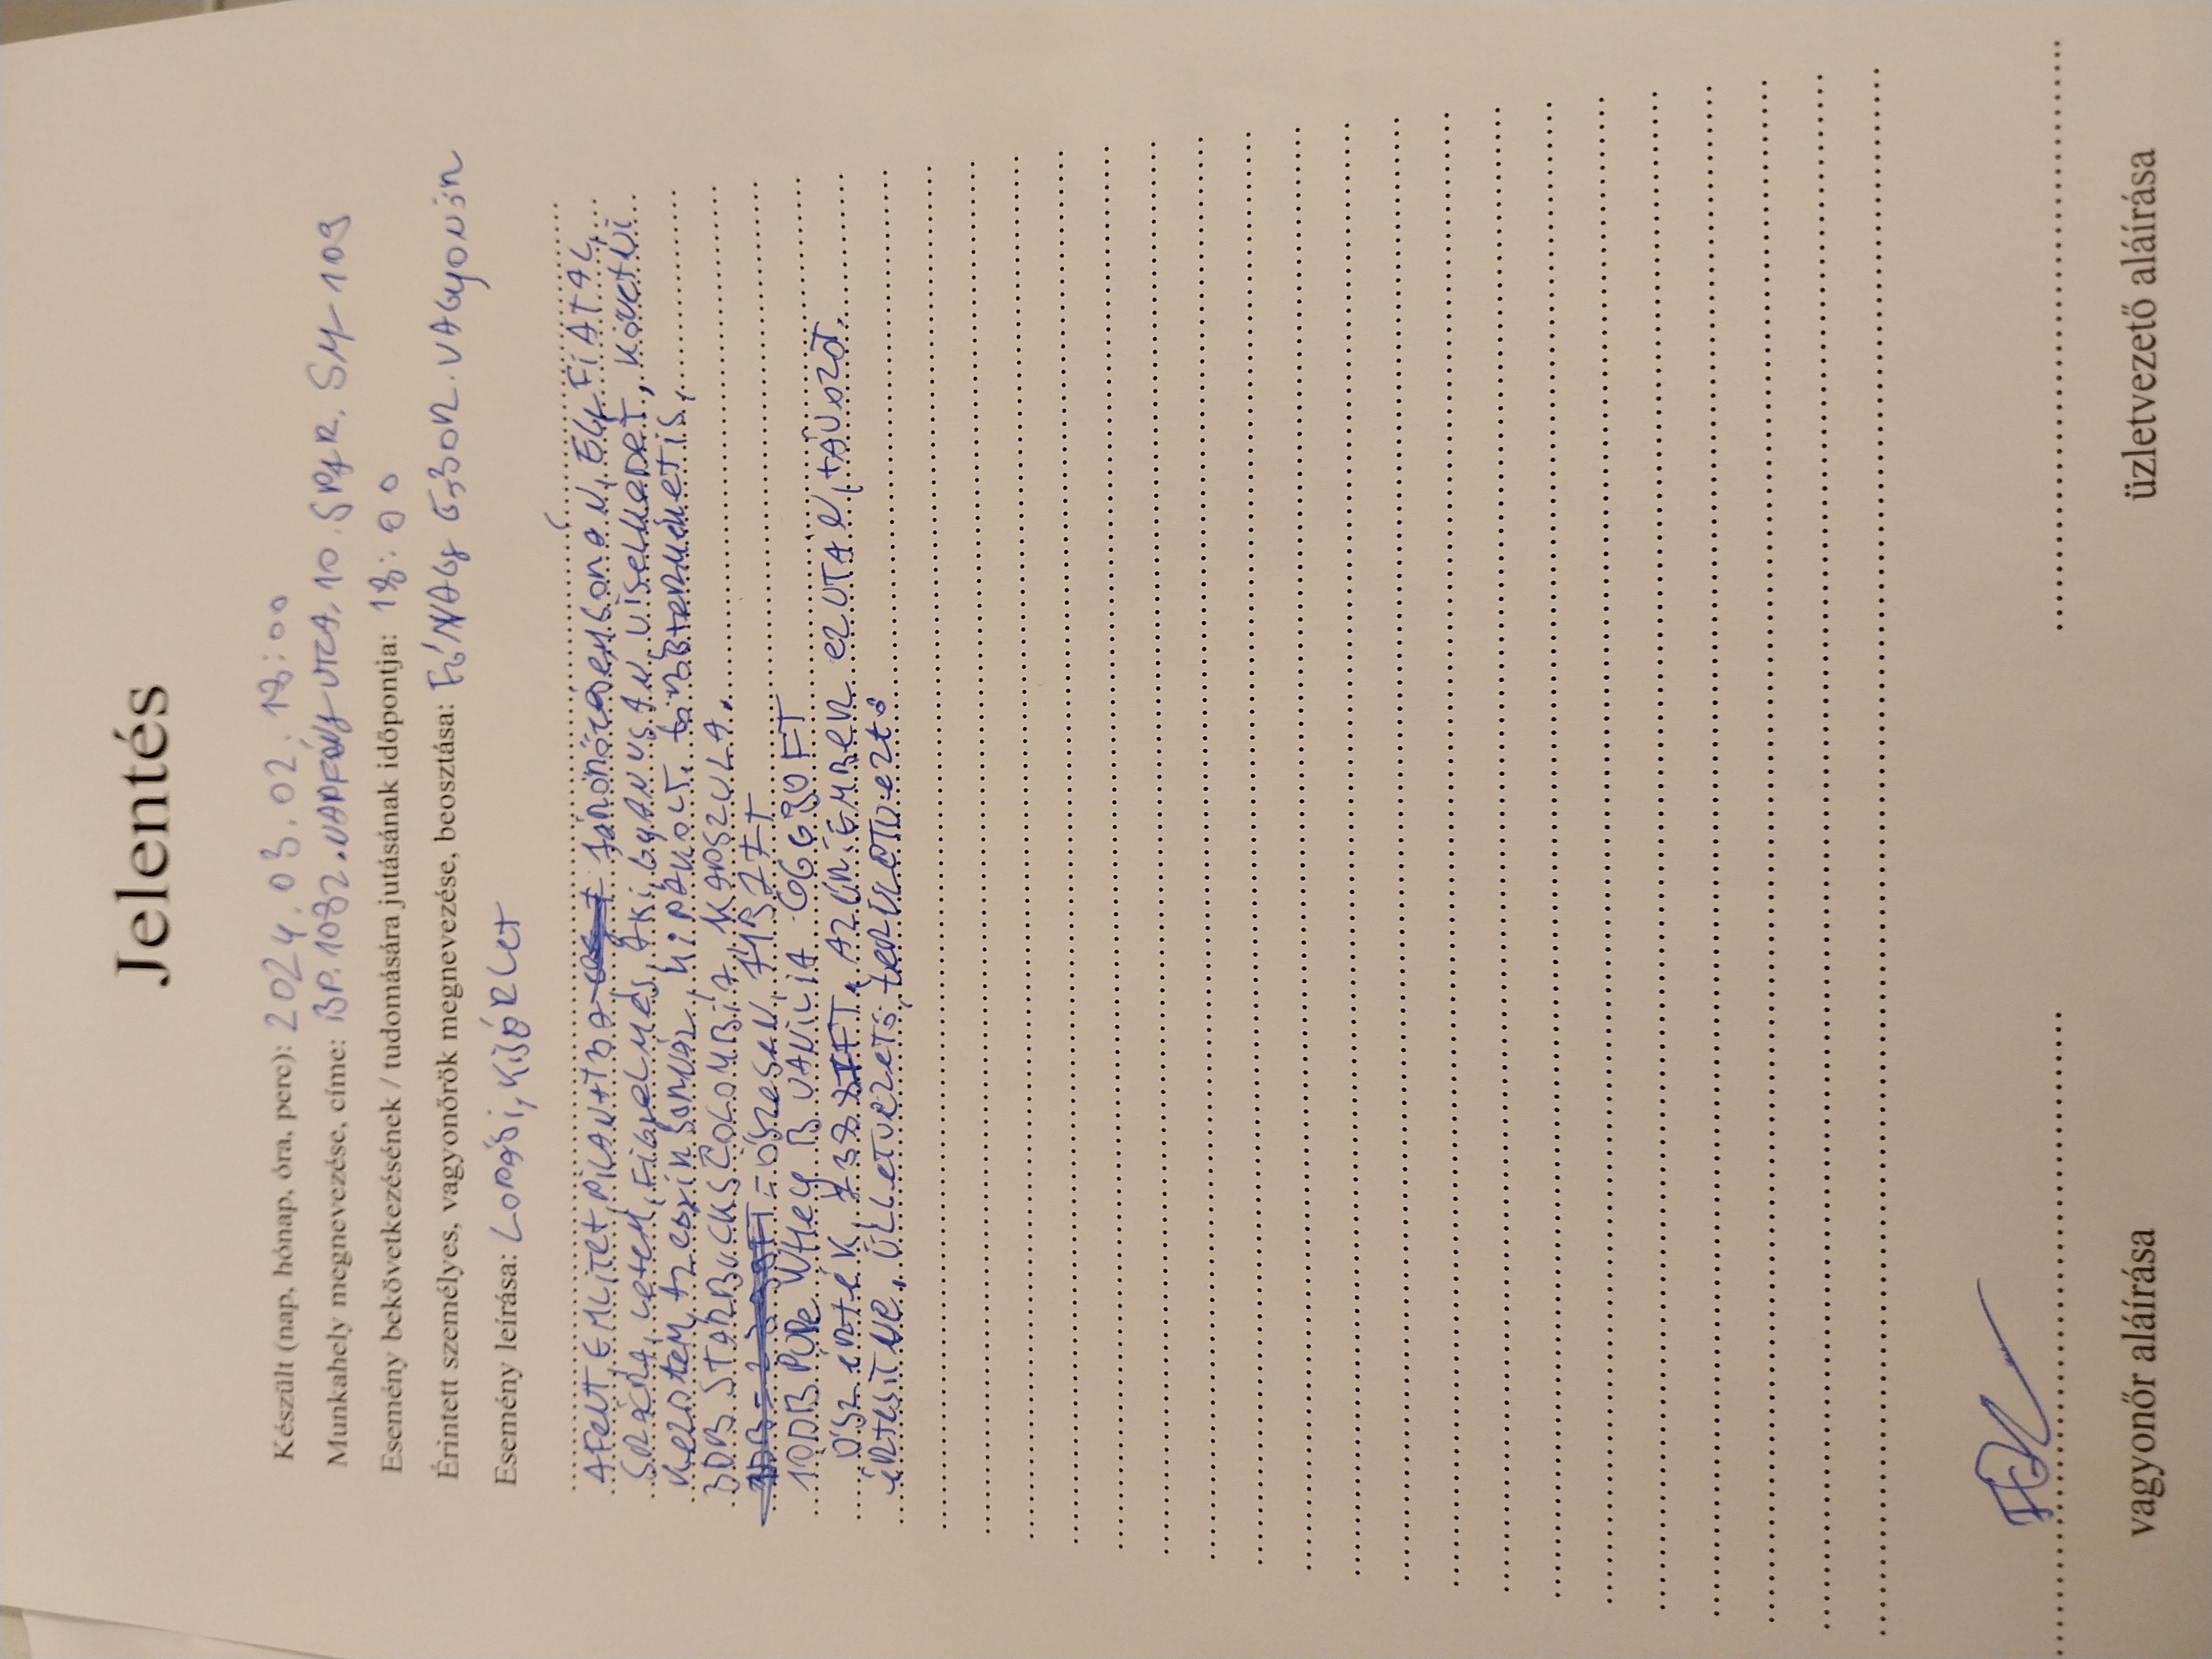 Jelentés
Készült (nap, hónap, óra, perc): 2024.03.02. 18:00
Munkahely megnevezése, címe: BP. 1082. NAPFÉNY UTCA. 10. SPAR. SM-109
Esemény bekövetkezésének / tudomására jutásának időpontja: 18:00
Érintett személyes, vagyonőrök megnevezése, beosztása: FŐNAGY GÁBOR. VAGYONŐR
Esemény leírása: Lopási, Kisérlet
A FENT EMLITET PILANTBA JÁRŐRÖZÉSEM SORÁN, EGY FIATAL
SRÁCRA, LETEM, FIGYELMES, AKI, GYANUSAN VISELKEDET, KÖVETNI
KEZDTEM, SZERINSORNÁL, KIPAKOLT. TÖBB TERMÉKET IS,
3DB STARBUCKS COLOMBIA KAPSZULA.
= ÖSZESEN,
1DB PURE WHEY B VANILIA
ÖSZ ÉRTÉK, AZ ÚRI, EMBER EZ UTÁN, TÁVOZOT.
ÉRTESITVE, ÜLLETVEZETŐ, TERÜLETVEZETŐ
vagyonőr aláírása
üzletvezető aláírása